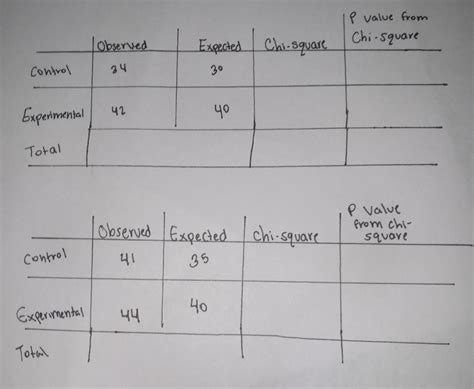 P value from
Observed Expected Chi-square Chi-square
Control 34 30
Experimental 42 40
Total
P value
from chi-
Observed Expected Chi-square square
Control 41 35
Experimental 44 40
Total